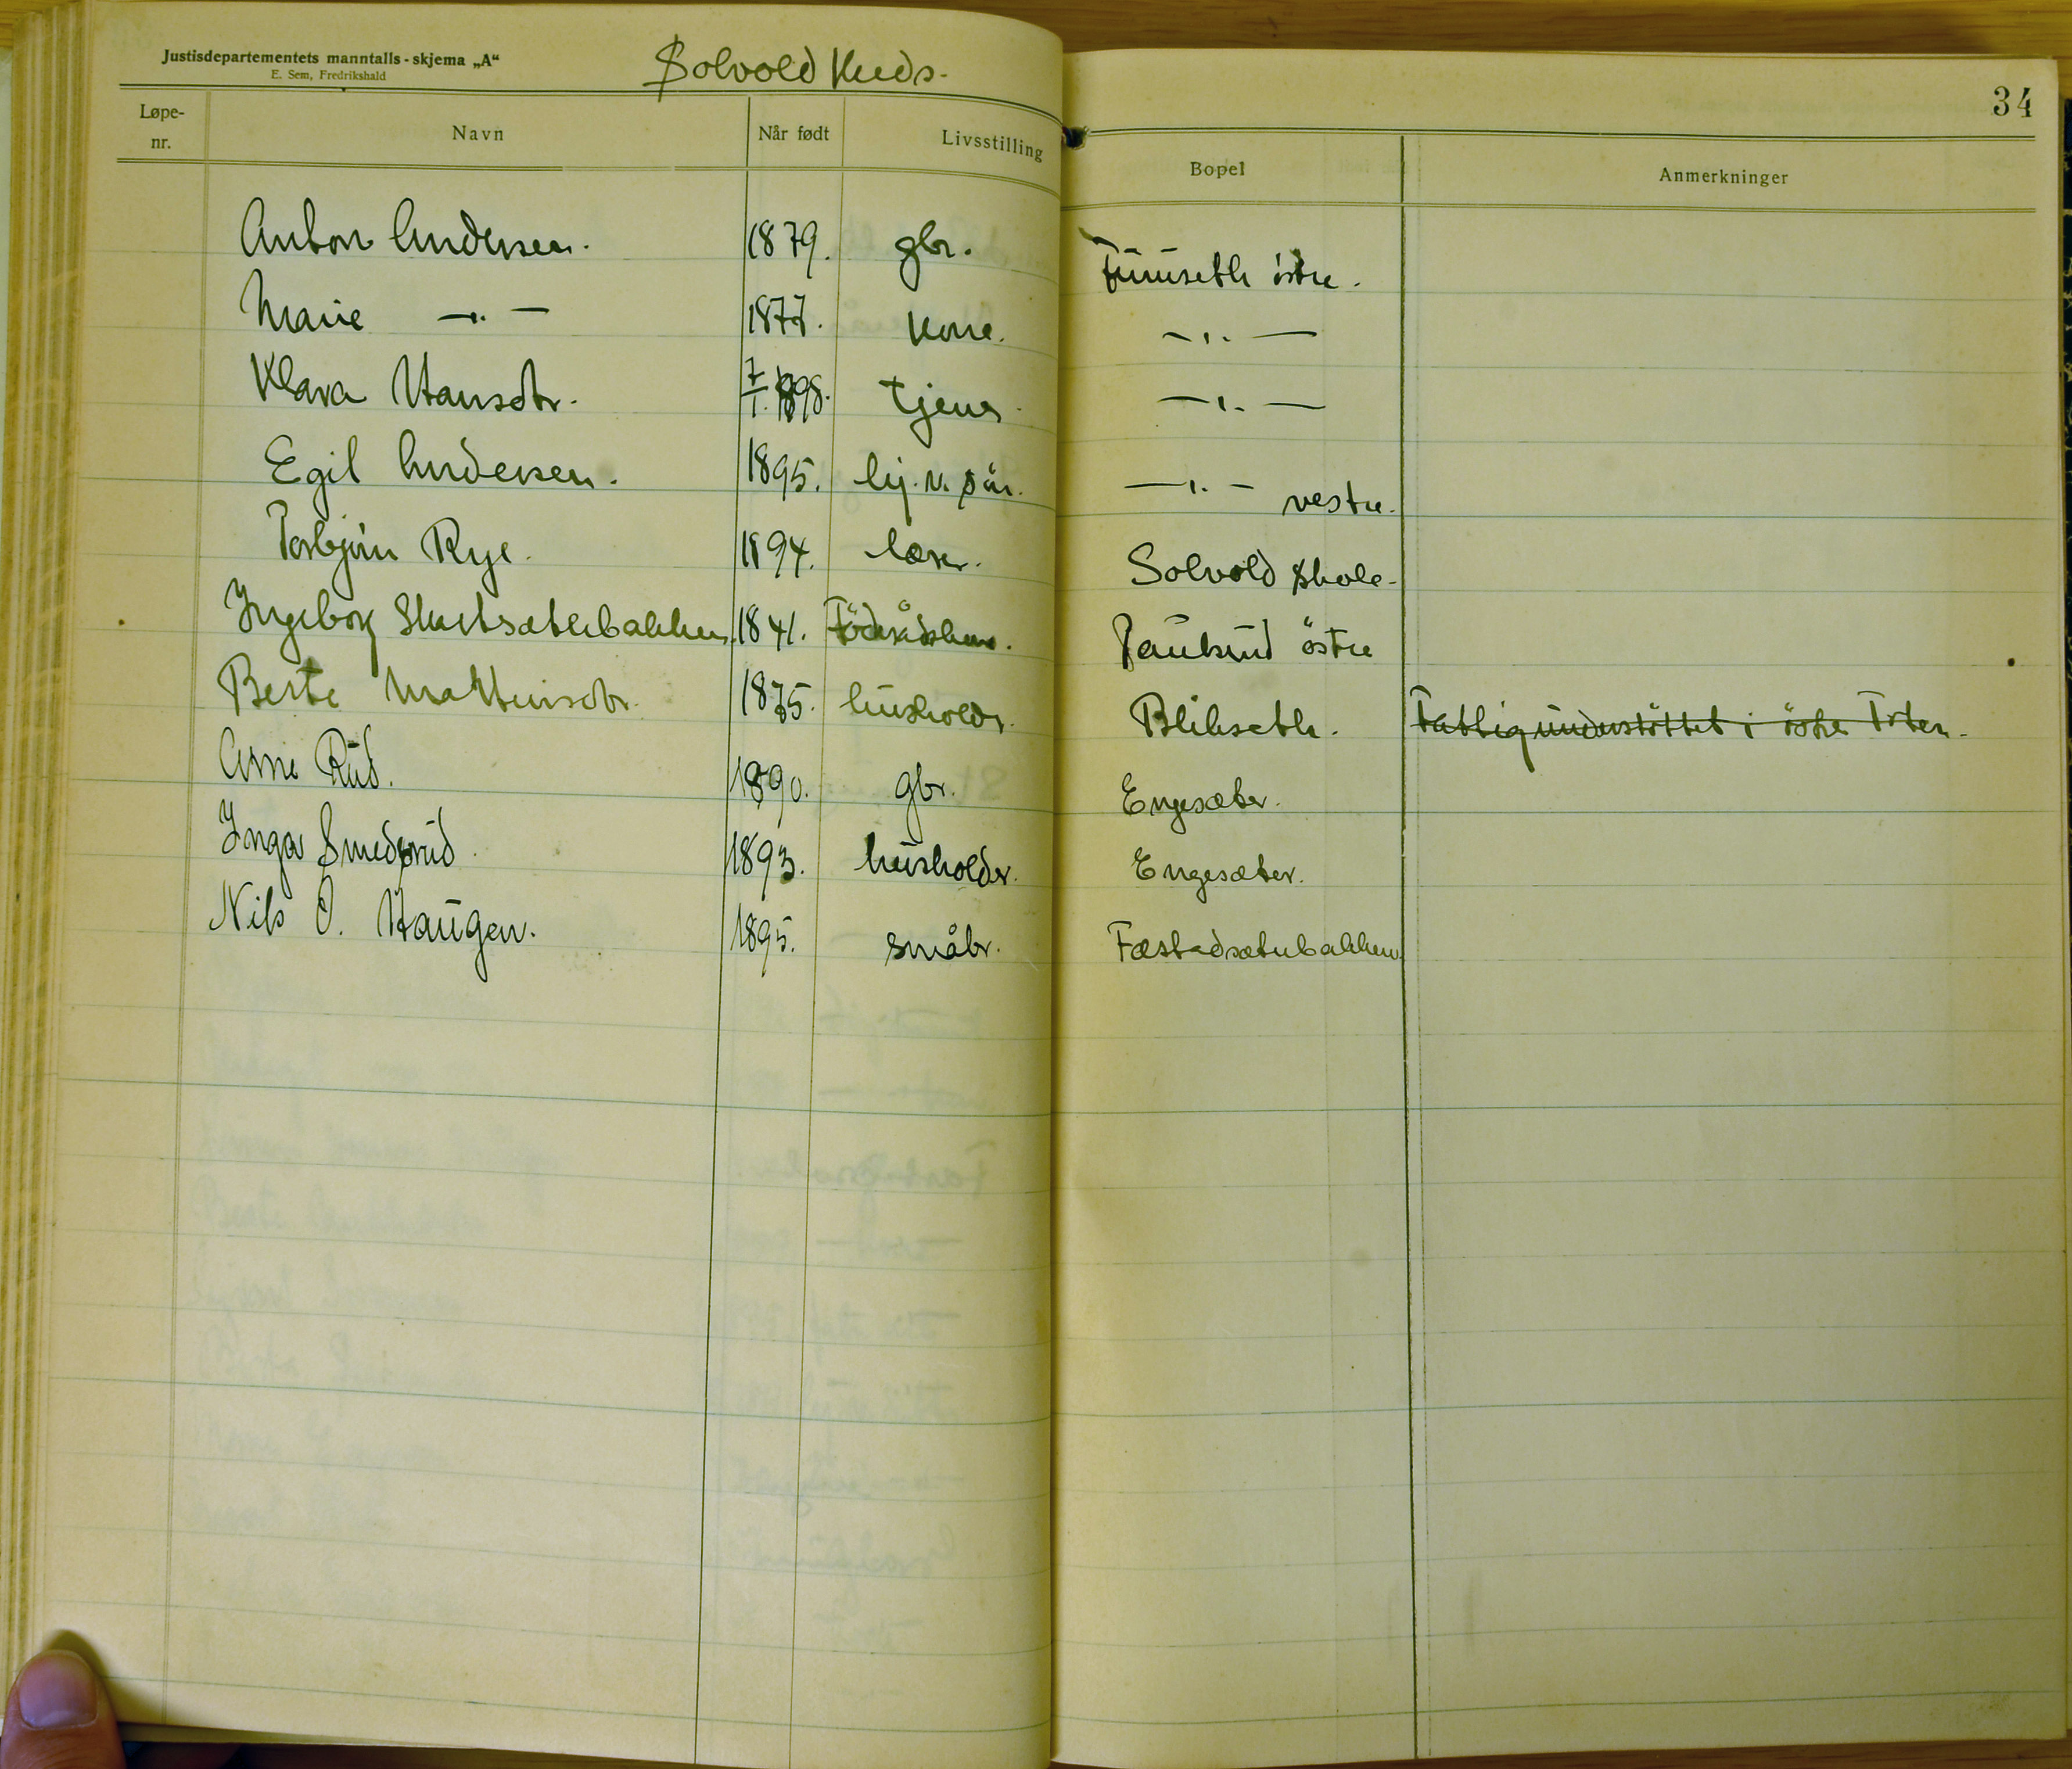 Justisdepartementets manntalls-skjema „A“
E. Sem, Fredrikshald
Solvold Kreds.
34
Løpe-nr. Navn Når født Livsstilling Bopel Anmerkninger
Anton Andersen. 1879. gbr. Furuseth östre.
Marie —〃— 1877. kone. —〃—
Klara Hansdtr. 7/1. 1898. tjener —〃—
Egil Andersen. 1895. hj. v. går. —〃— vestre.
Torbjörn Rye. 1894. lærer. Solvold skole.
Ingeborg 1841. Föderådskone. Paulsrud östre
Berte Mathisdtr. 1875. husholdr. Blikseth. Fattigunderstöttet i östre Toten.
Arne Rud. 1890. gbr. Engesæter.
Inga Smedsrud. 1893. husholder. Engesæter.
Nils O. Haugen. 1895. småbr. Fæstadsæterbakken